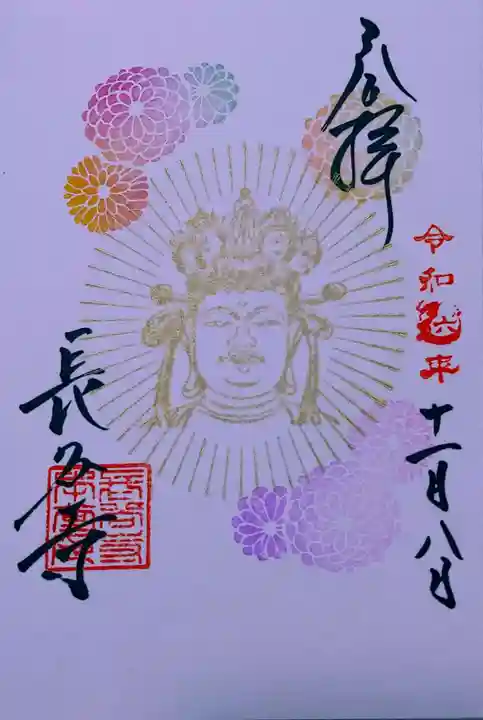 拝
令和六年
十一月八日
長谷寺